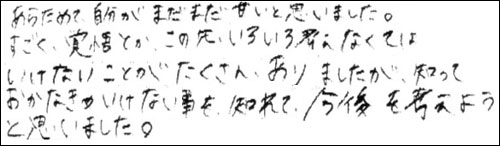 あらためて、自分がまだまだ甘いと思いました。
すごく、覚悟とか、この先いろいろ考えなくては
いけないことがたくさん、ありましたが、知って
おかなきゃいけない事を、知れて、今後を考えよう
と思いました。